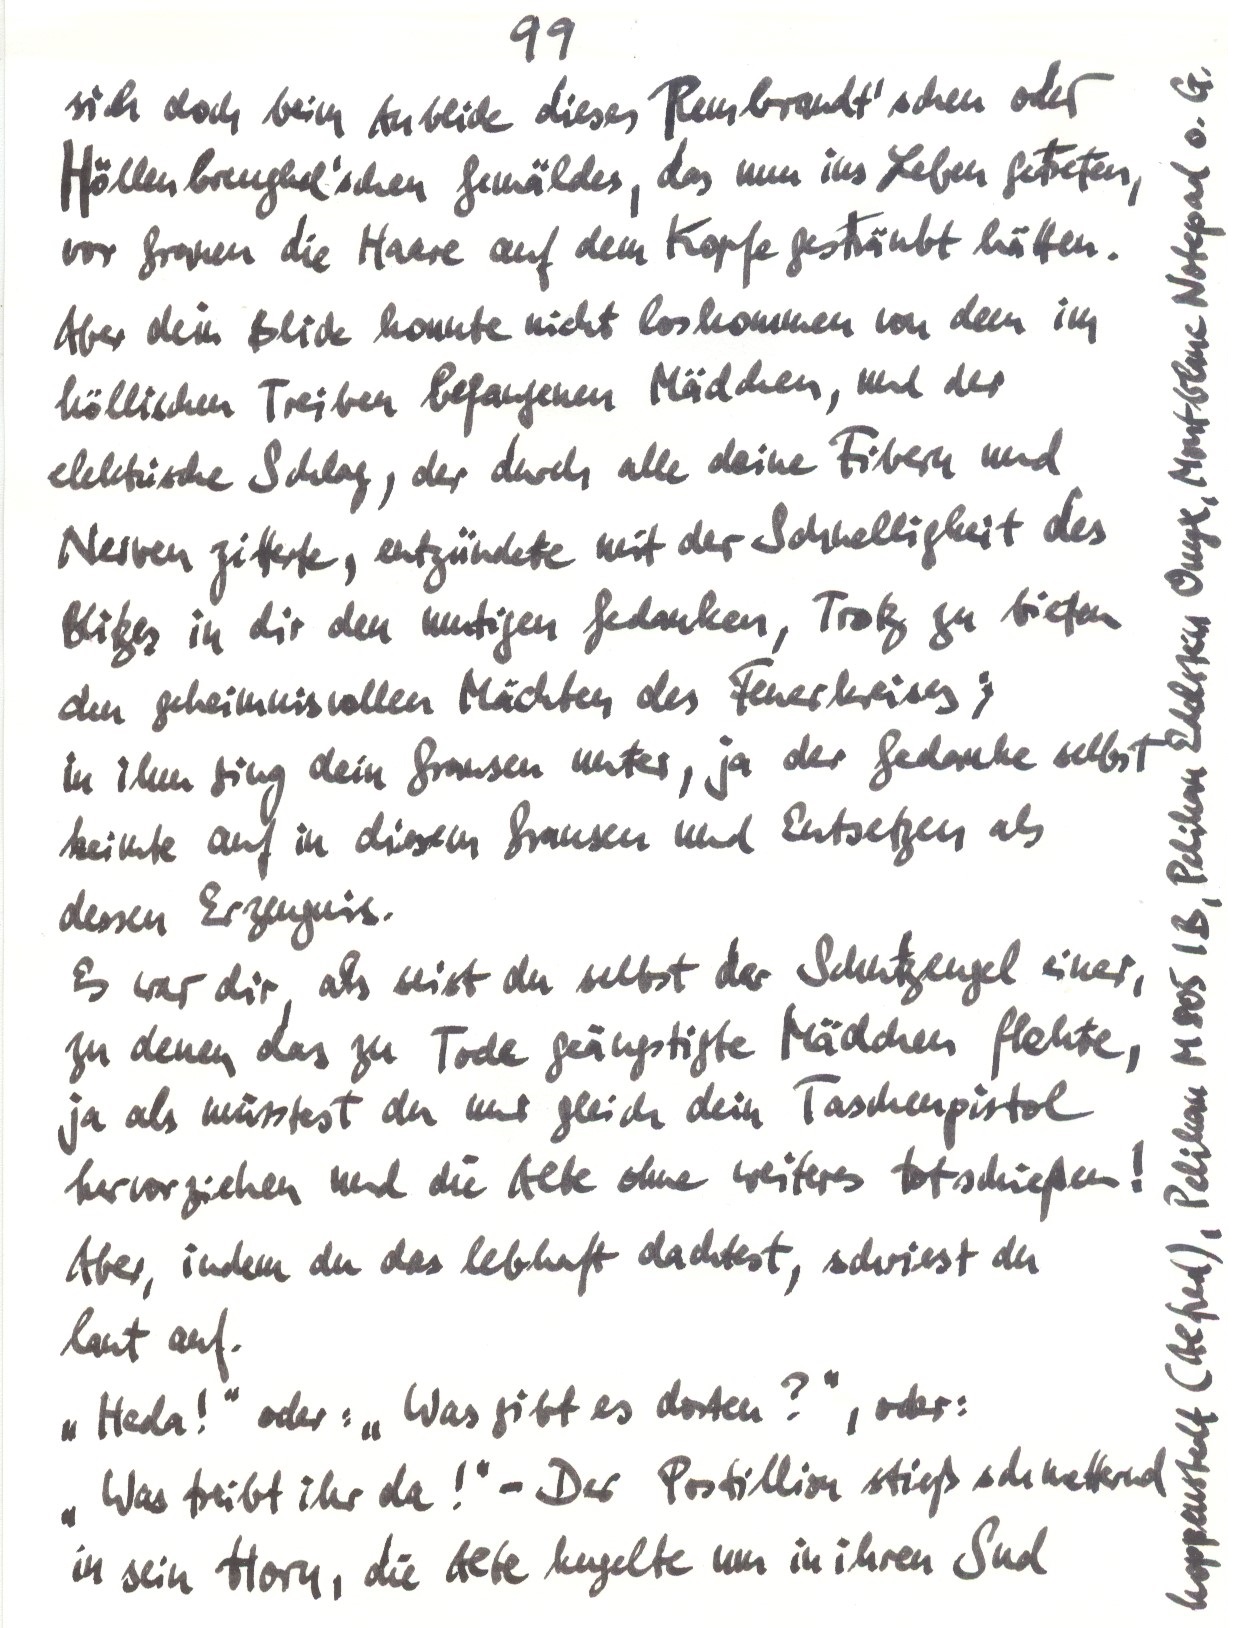 99
sich doch beim Anblick dieses Rembrandt'schen oder
Höllenbreughel'schen Gemäldes, das nun ins Leben getreten,
vor Grauen die Haare auf dem Kopfe gesträubt hätten.
Aber dein Blick konnte nicht loskommen von dem im
höllischen Treiben befangenen Mädchen, und der
elektrische Schlag, der durch alle deine Fibern und
Nerven zitterte, entzündete mit der Schnelligkeit des
Blitzes in dir den mutigen Gedanken, Trotz zu bieten
den geheimnisvollen Mächten des Feuerkreises;
in ihm ging dein Grausen unter, ja der Gedanke selbst
keimte auf in diesem Grausen und Entsetzen als
dessen Erzeugnis.
Es war dir, als seist du selbst der Schutzengel einer,
zu denen das zu Tode geängstigte Mädchen flehte,
ja als müsstest du nur gleich dein Taschenpistol
hervorziehen und die Alte ohne weiteres totschießen!
Aber, indem du das lebhaft dachtest, schriest du
laut auf.
„Heda!" oder: „Was gibt es dorten?", oder:
„Was treibt ihr da!" - Der Postillion stieß schmetternd
in sein Horn, die Alte kugelte um in ihren Sud
hoppenstedt (Alfred), Pelikan M 805 IB, Pelikan Edelstein Onyx, Montblanc Notepad o. G.